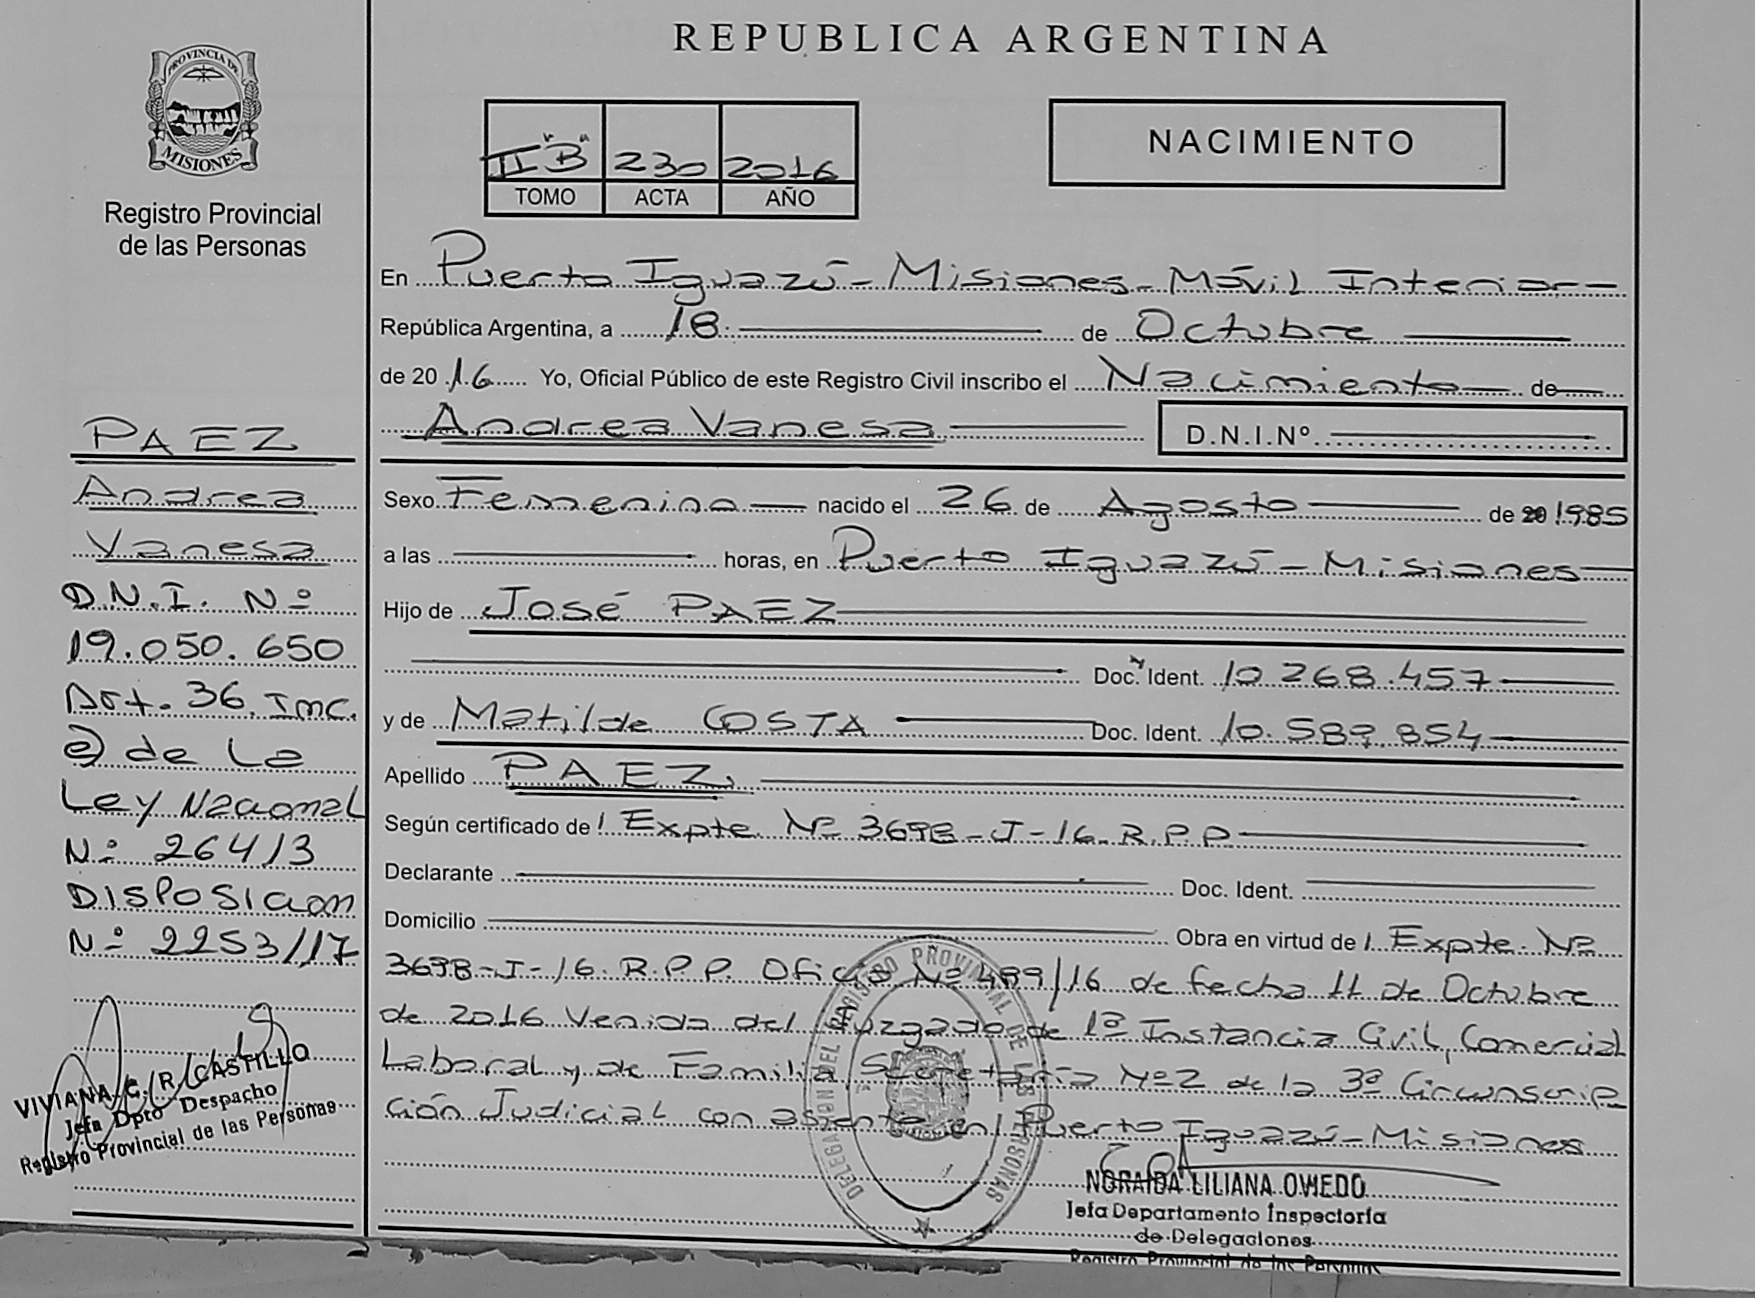 REPUBLICA ARGENTINA
PROVINCIA DE
MISIONES
Registro Provincial
de las Personas
II "B" 230 2016
TOMO ACTA AÑO
NACIMIENTO
En Puerto Iguazú - Misiones - Móvil Interior -
República Argentina, a 18 de Octubre
de 2016 Yo, Oficial Público de este Registro Civil inscribo el Nacimiento de
Andrea Vanesa D.N.I.Nº
Sexo Femenino nacido el 26 de Agosto de 20 1985
a las horas, en Puerto Iguazú - Misiones
Hijo de José PAEZ
Doc. Ident. 10.268.457
y de Matilde COSTA Doc. Ident. 10.589.854
Apellido PAEZ.
Según certificado de Expte Nº 3698-J-16-R.P.P
Declarante Doc. Ident.
Domicilio Obra en virtud de Expte. Nº
3698-J-16 R.P.P. Oficio Nº 489/16 de fecha 11 de Octubre
de 2016 Venido del Juzgado de 1ª Instancia Civil, Comercial
Laboral y de Familia Secretaría Nº 2 de la 3ª Circunscrip
ción Judicial con asiento en Puerto Iguazú - Misiones
PAEZ
Andrea
Vanesa
D.N.I. Nº
19.050.650
Art. 36 Inc.
e) de La
Ley Nacional
Nº 26413
DISPOSICION
Nº 2253/17
VIVIANA C. R. CASTILLO
Jefa Dpto Despacho
Registro Provincial de las Personas
DELEGACION DEL REGISTRO PROVINCIAL DE LAS PERSONAS
NORAIDA LILIANA OVIEDO
Jefa Departamento Inspectoría
de Delegaciones
Registro Provincial de las Personas